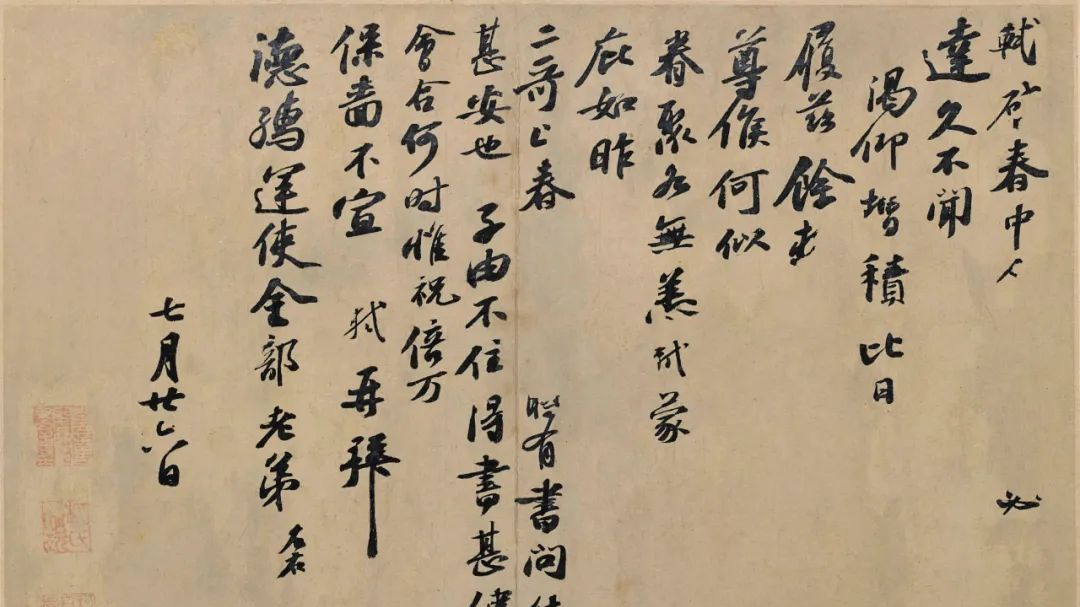 軾啓春中人 必
達久不聞
渴仰增積比日
履茲餘
尊候何似
眷聚各無恙軾蒙
庇如昨
二哥上春 時有書問
甚安也 子由不住得書甚
會合何時惟祝倍万
保嗇不宣 軾再拜
德孺運使金部老弟 左右
七月廿六日